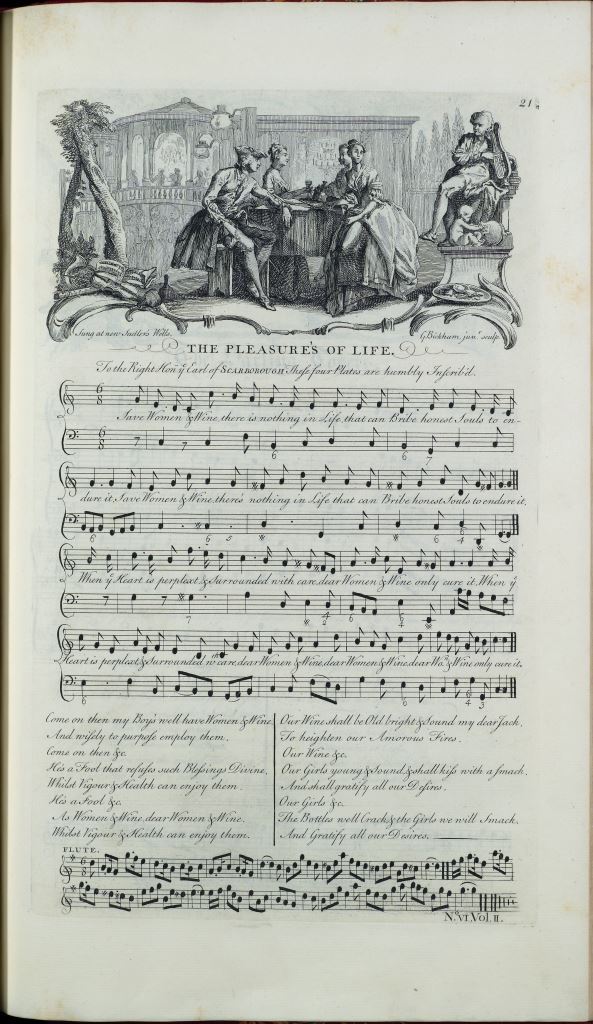 21
Sung at new Sadler's Wells.
G. Bickham, junr. sculp.
THE PLEASURES OF LIFE.
To the Right Hon. ye Earl of SCARBOROUGH These four Plates are humbly Inscrib'd.
Save Women & Wine, there is nothing in Life, that can Bribe honest Souls to en-
dure it, Save Women & Wine, there's nothing in Life that can Bribe honest Souls to endure it,
When ye Heart is perplext & Surrounded with care, dear Women & Wine only cure it, When ye
Heart is perplext & Surrounded wth care, dear Women & Wine, dear Women & Wine, dear Wo. & Wine only cure it.
Come on then my Boys we'll have Women & Wine
And wisely to purpose employ them.
Come on then &c.
He's a Fool that refuses such Blessings Divine,
Whilst Vigour & Health can enjoy them.
He's a Fool &c.
As Women & Wine, dear Women & Wine.
Whilst Vigour & Health can enjoy them.
Our Wine shall be Old bright & Sound my dear Jack,
To heighten our Amorous Fires.
Our Wine &c.
Our Girls young & Sound, & shall kiss with a smack,
And shall gratify all our Desires.
Our Girls &c.
The Bottles we'll Crack & the Girls we will Smack,
And Gratify all our Desires.
FLUTE.
No. VI. Vol. II.